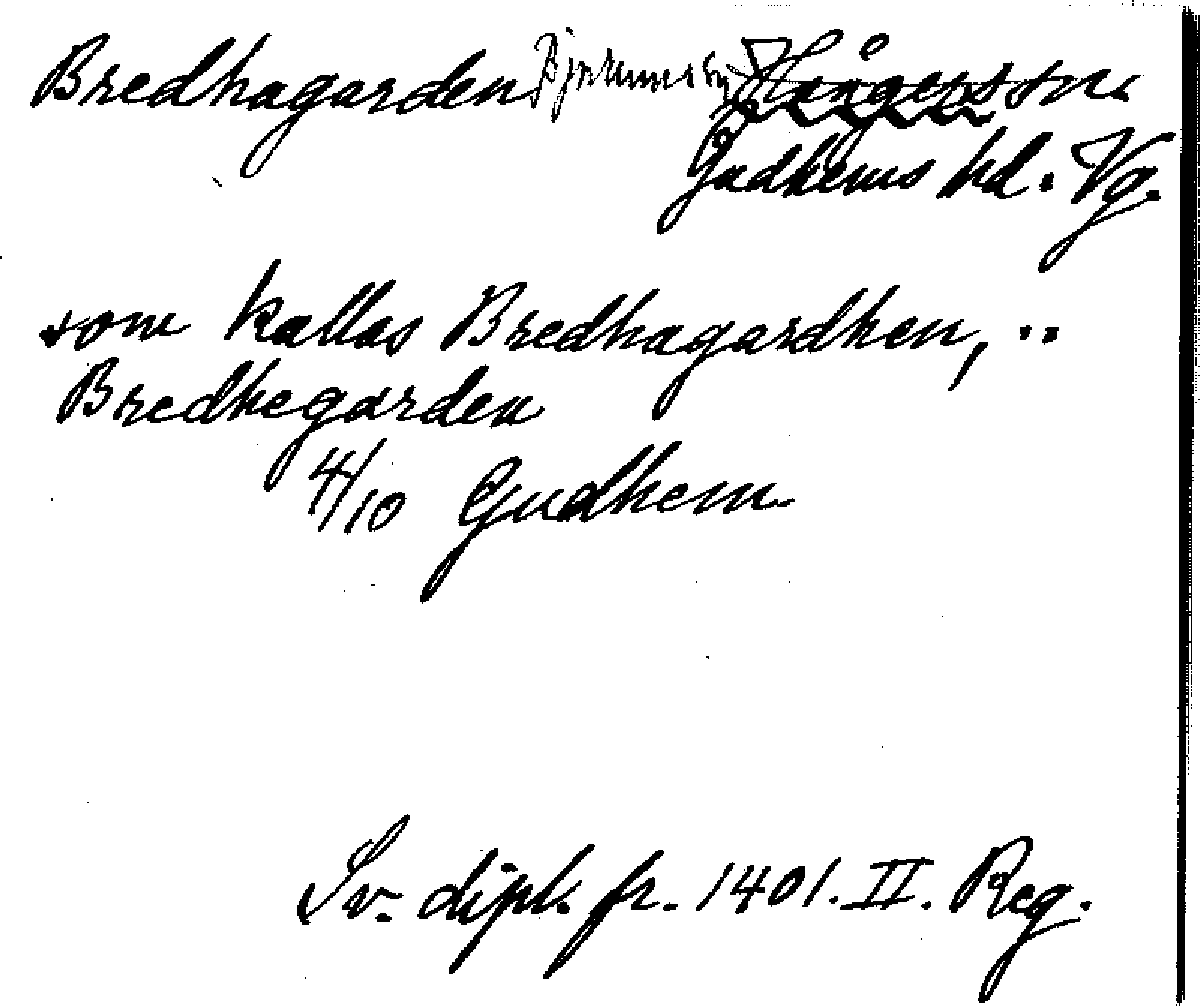 Bredhagarden Bjurums sn
Gudhems hd. Vg.
som kallas Bredhagardhen, ..
Bredhegarden
4/10 Gudhem
Sv. dipl. fr. 1401. II. Reg.